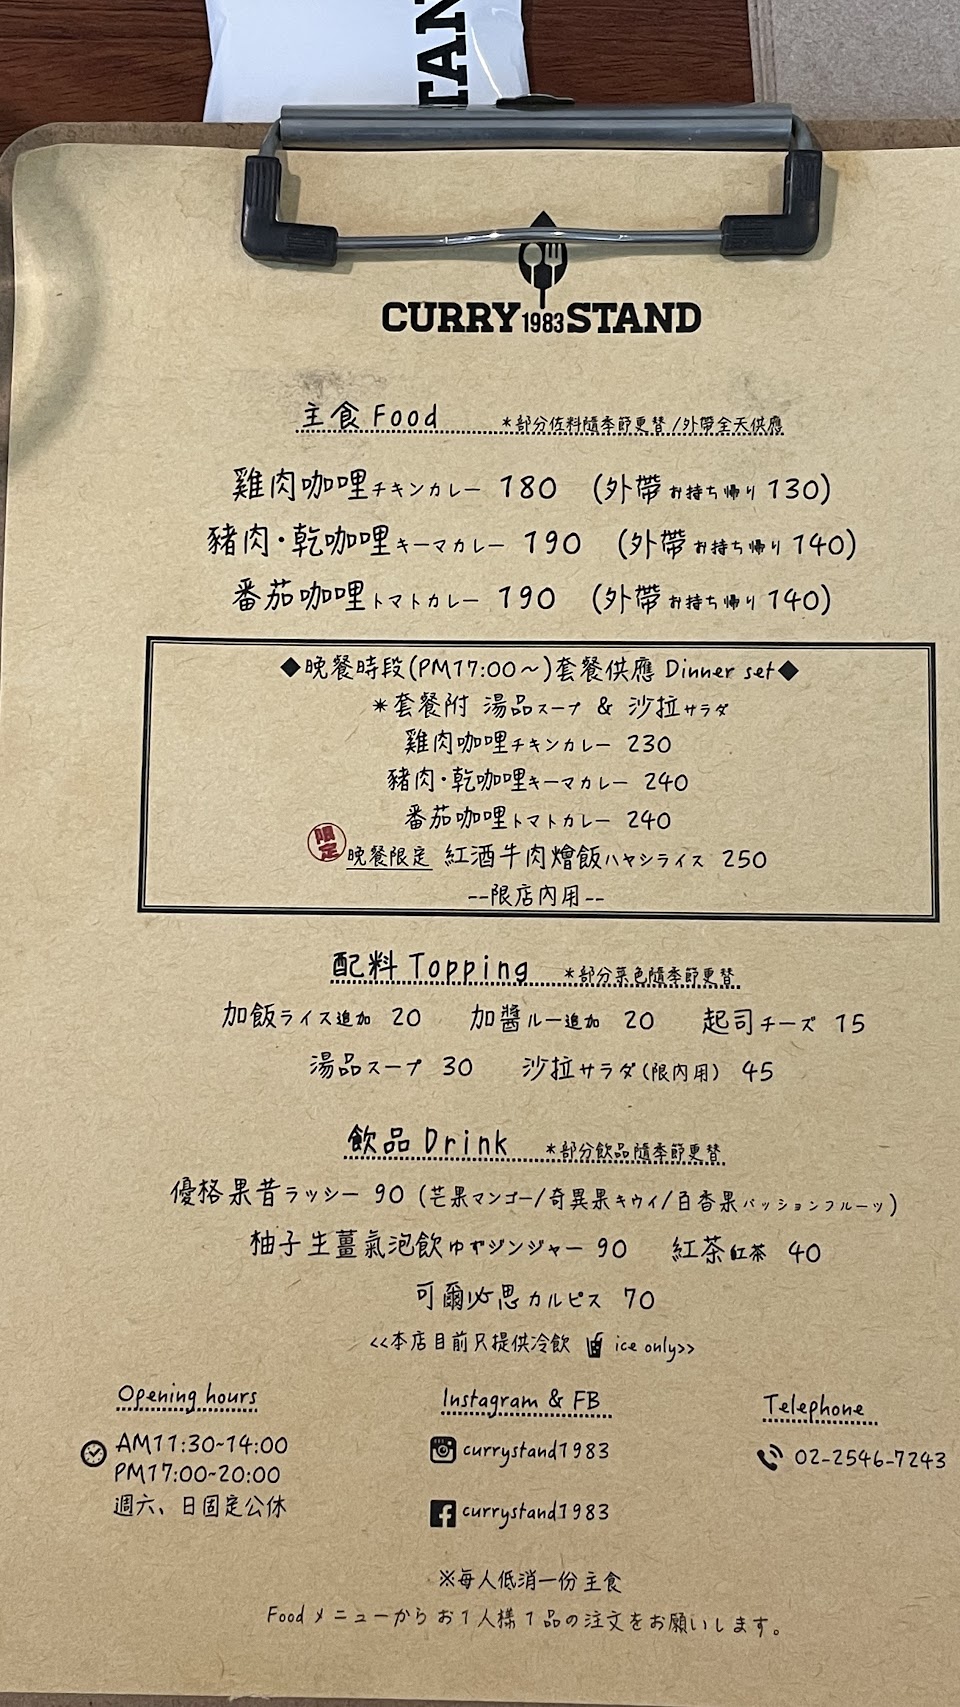 TAN
CURRY 1983 STAND
主食 Food *部分佐料隨季節更替/外帶全天供應
雞肉咖哩チキンカレー 180 (外帶お持ち帰り130)
豬肉·乾咖哩キーマカレー 190 (外帶お持ち帰り140)
番茄咖哩トマトカレー 190 (外帶お持ち帰り140)
◆晚餐時段(PM17:00~)套餐供應 Dinner set◆
*套餐附 湯品スープ & 沙拉サラダ
雞肉咖哩チキンカレー 230
豬肉·乾咖哩キーマカレー 240
番茄咖哩トマトカレー 240
限定 晚餐限定 紅酒牛肉燴飯ハヤシライス 250
--限店內用--
配料 Topping *部分菜色隨季節更替
加飯ライス追加 20 加醬ルー追加 20 起司チーズ 15
湯品スープ 30 沙拉サラダ(限內用) 45
飲品 Drink *部分飲品隨季節更替
優格果昔ラッシー 90 (芒果マンゴー/奇異果キウイ/百香果パッションフルーツ)
柚子生薑氣泡飲ゆずジンジャー 90 紅茶紅茶 40
可爾必思カルピス 70
<<本店目前只提供冷飲 ice only>>
Opening hours Instagram & FB Telephone
AM11:30~14:00 currystand1983 02-2546-7243
PM17:00~20:00
週六、日固定公休 currystand1983
※每人低消一份主食
Foodメニューからお1人様1品の注文をお願いします。